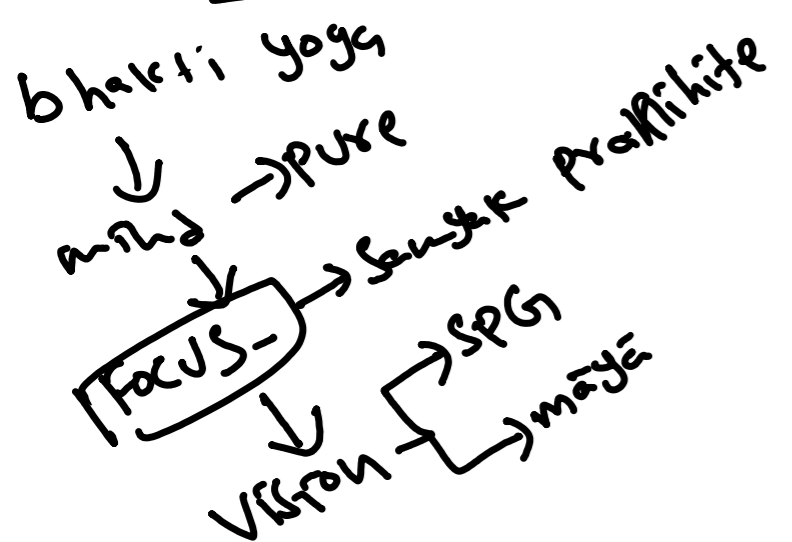 bhakti yoga
mind → pure
FOCUS → Samyak praṇihite
vision → SPG
→ māyā